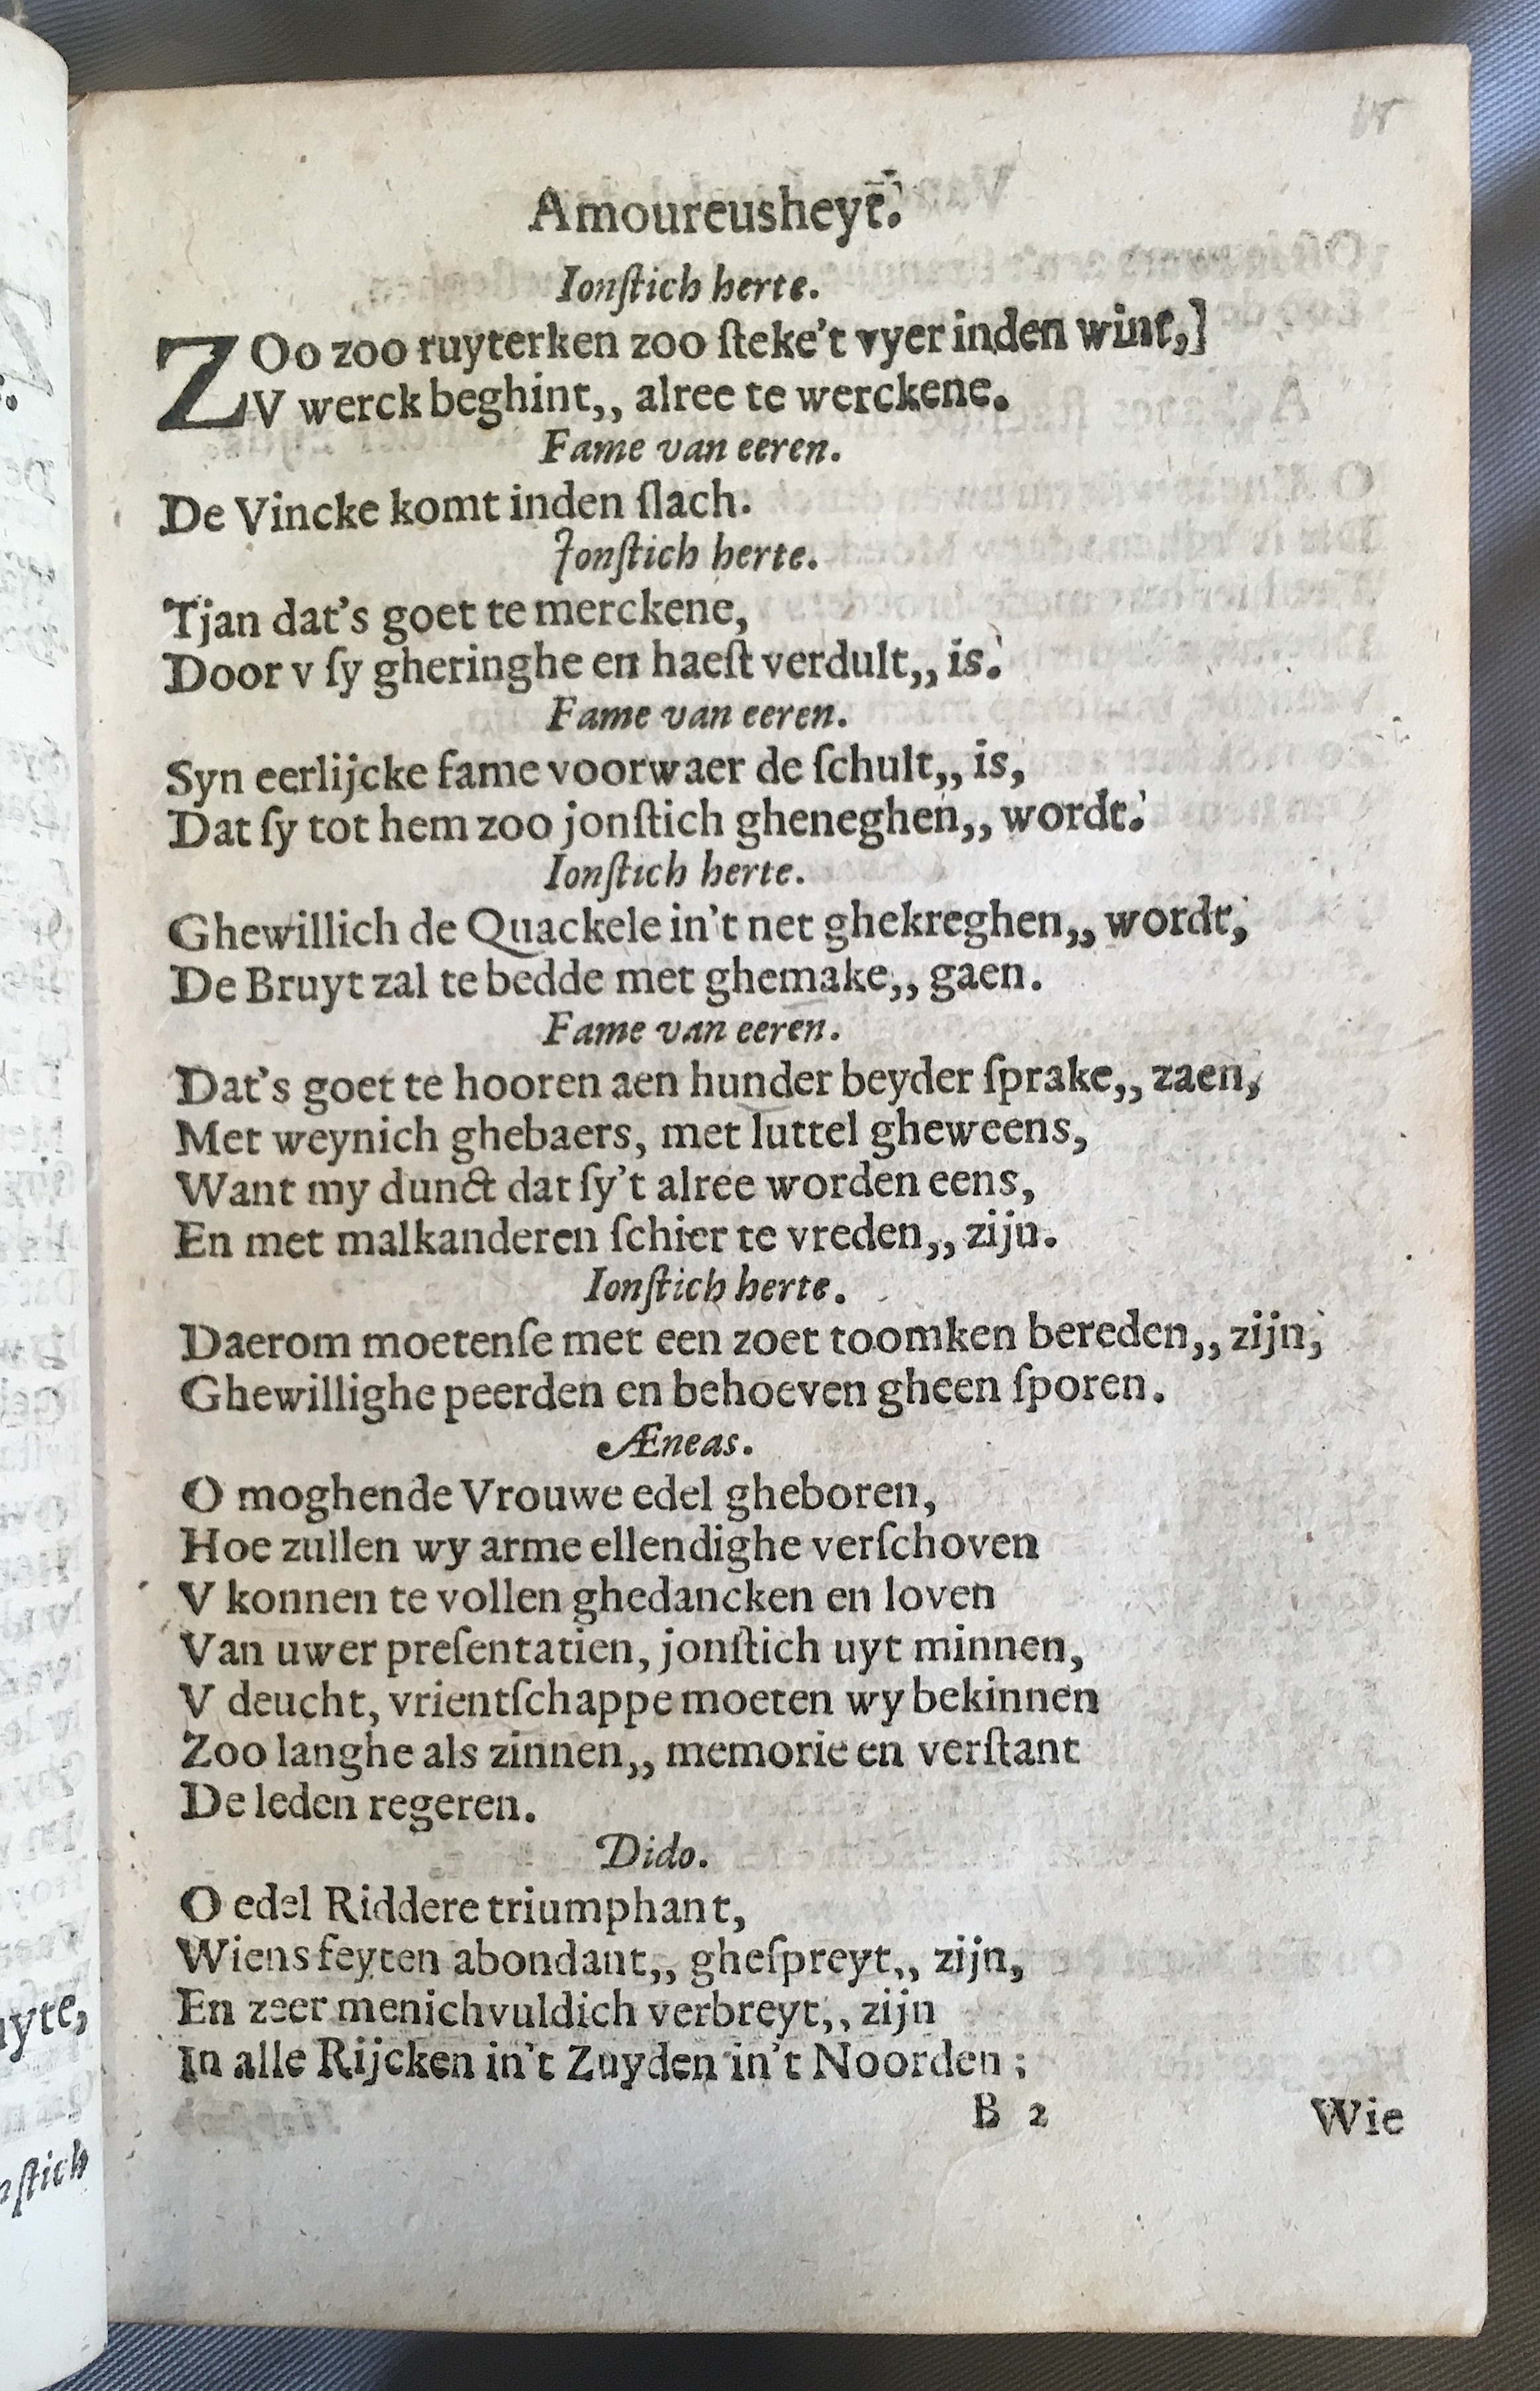 Amoureusheyt.
Ionſtich herte.
ZOo zoo ruyterken zoo ſteke't vyer inden wint,]
V werck beghint,, alree te werckene.
Fame van eeren.
De Vincke komt inden ſlach.
Jonſtich herte.
Tjan dat's goet te merckene,
Door v ſy gheringhe en haeſt verdult,, is.
Fame van eeren.
Syn eerlijcke fame voorwaer de ſchult,, is,
Dat ſy tot hem zoo jonſtich gheneghen,, wordt.
Ionſtich herte.
Ghewillich de Quackele in't net ghekreghen,, wordt,
De Bruyt zal te bedde met ghemake,, gaen.
Fame van eeren.
Dat's goet te hooren aen hunder beyder ſprake,, zaen,
Met weynich ghebaers, met luttel gheweens,
Want my dunct dat ſy't alree worden eens,
En met malkanderen ſchier te vreden,, zijn.
Ionſtich herte.
Daerom moetenſe met een zoet toomken bereden,, zijn,
Ghewillighe peerden en behoeven gheen ſporen.
Æneas.
O moghende Vrouwe edel gheboren,
Hoe zullen wy arme ellendighe verſchoven
V konnen te vollen ghedancken en loven
Van uwer preſentatien, jonſtich uyt minnen,
V deucht, vrientſchappe moeten wy bekinnen
Zoo langhe als zinnen,, memorie en verſtant
De leden regeren.
Dido.
O edel Riddere triumphant,
Wiens feyten abondant,, gheſpreyt,, zijn,
En zeer menichvuldich verbreyt,, zijn
In alle Rijcken in't Zuyden in't Noorden ;
B 2 Wie